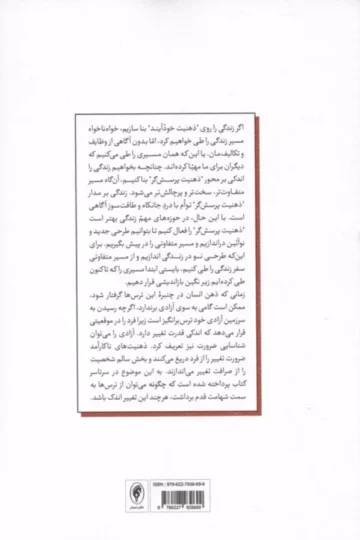 اگر زندگی را روی "ذهنیت خودآیند" بنا سازیم، خواه‌ناخواه
مسیر زندگی را طی خواهیم کرد، امّا بدون آگاهی از وظایف
و تکالیف‌مان. یا این که همان مسیری را طی می‌کنیم که
دیگران برای ما مهیّا کرده‌اند. چنانچه بخواهیم زندگی را
اندکی بر محور "ذهنیت پرسش‌گر" بنا کنیم، آن‌گاه مسیر
متفاوت‌تر، سخت‌تر و پرچالش‌تر می‌شود. زندگی بر مدار
"ذهنیت پرسش‌گر" توأم با دردِ جانکاه و طاقت‌سوز آگاهی
است. با این حال، در حوزه‌های مهمّ زندگی بهتر است
"ذهنیت پرسش‌گر" را فعال کنیم تا بتوانیم طرحی جدید و
نوآئین دراندازیم و مسیر متفاوتی را در پیش بگیریم. برای
این‌که طرحی نو در زندگی اندازیم و از مسیر متفاوتی
سفر زندگی را طی کنیم، بایستی ابتدا مسیری را که تاکنون
طی کرده‌ایم زیر نگین بازاندیشی قرار دهیم.
زمانی که ذهن انسان در چنبرهٔ این ترس‌ها گرفتار شود،
ممکن است گامی به سوی آزادی برندارد، اگرچه رسیدن به
سرزمین آزادی خود ترس‌برانگیز است زیرا فرد را در موقعیتی
قرار می‌دهد که اندکی قدرت تغییر دارد. آزادی را می‌توان
شناسایی ضرورت نیز تعریف کرد. ذهنیت‌های ناکارآمد
ضرورت تغییر را از فرد دریغ می‌کنند و بخش سالم شخصیت
را از صرافت تغییر می‌اندازند. به این موضوع در سرتاسر
کتاب پرداخته شده است که چگونه می‌توان از ترس‌ها به
سمت شهامت قدم برداشت، هرچند این تغییر اندک باشد.